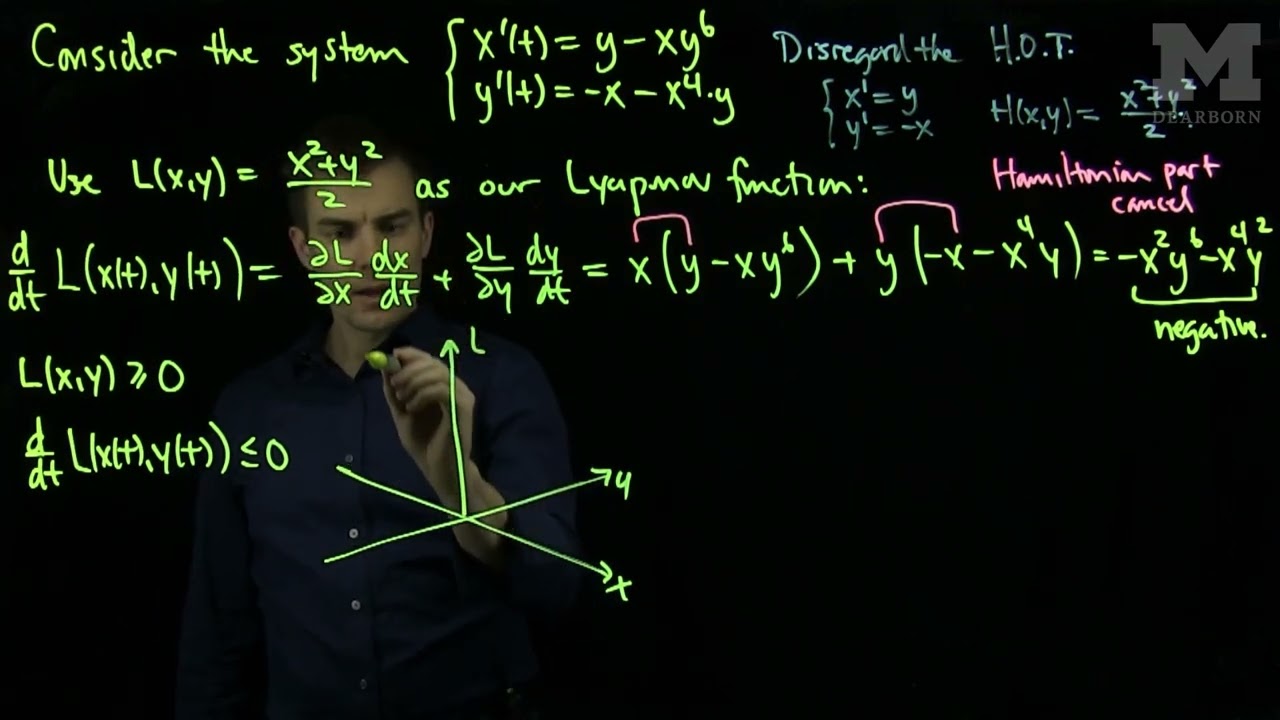 Consider the system { x'(t) = y - xy⁶
y'(t) = -x - x⁴·y
Disregard the H.O.T.
{ x' = y
y' = -x
H(x,y) = (x²+y²)/2
M
DEARBORN
Use L(x,y) = (x²+y²)/2 as our Lyapunov function:
Hamiltonian part
cancel
d/dt L(x(t), y(t)) = ∂L/∂x dx/dt + ∂L/∂y dy/dt = x(y - xy⁶) + y(-x - x⁴y) = -x²y⁶ - x⁴y²
negative.
L(x,y) ≥ 0
d/dt L(x(t), y(t)) ≤ 0
L
y
x